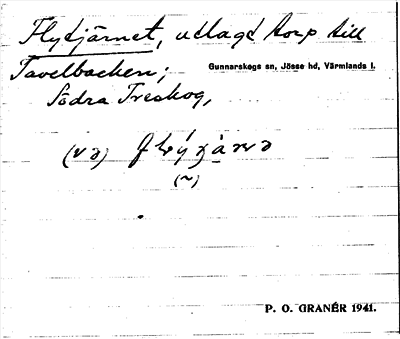 Flytjärnet, utlagd torp till
Tavelbacken;
Gunnarskogs sn, Jösse hd, Värmlands l.
Södra Treskog,
(va)
(~)
P. O. GRANÉR 1941.